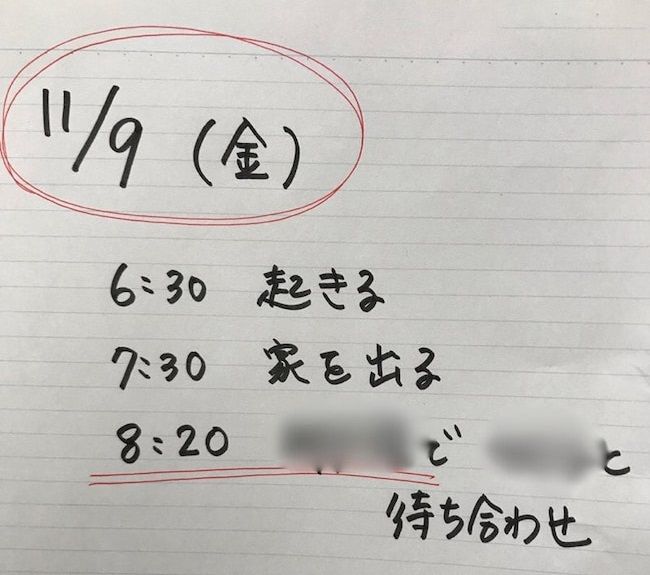 11/9 (金)
6:30 起きる
7:30 家を出る
8:20 で と
待ち合わせ